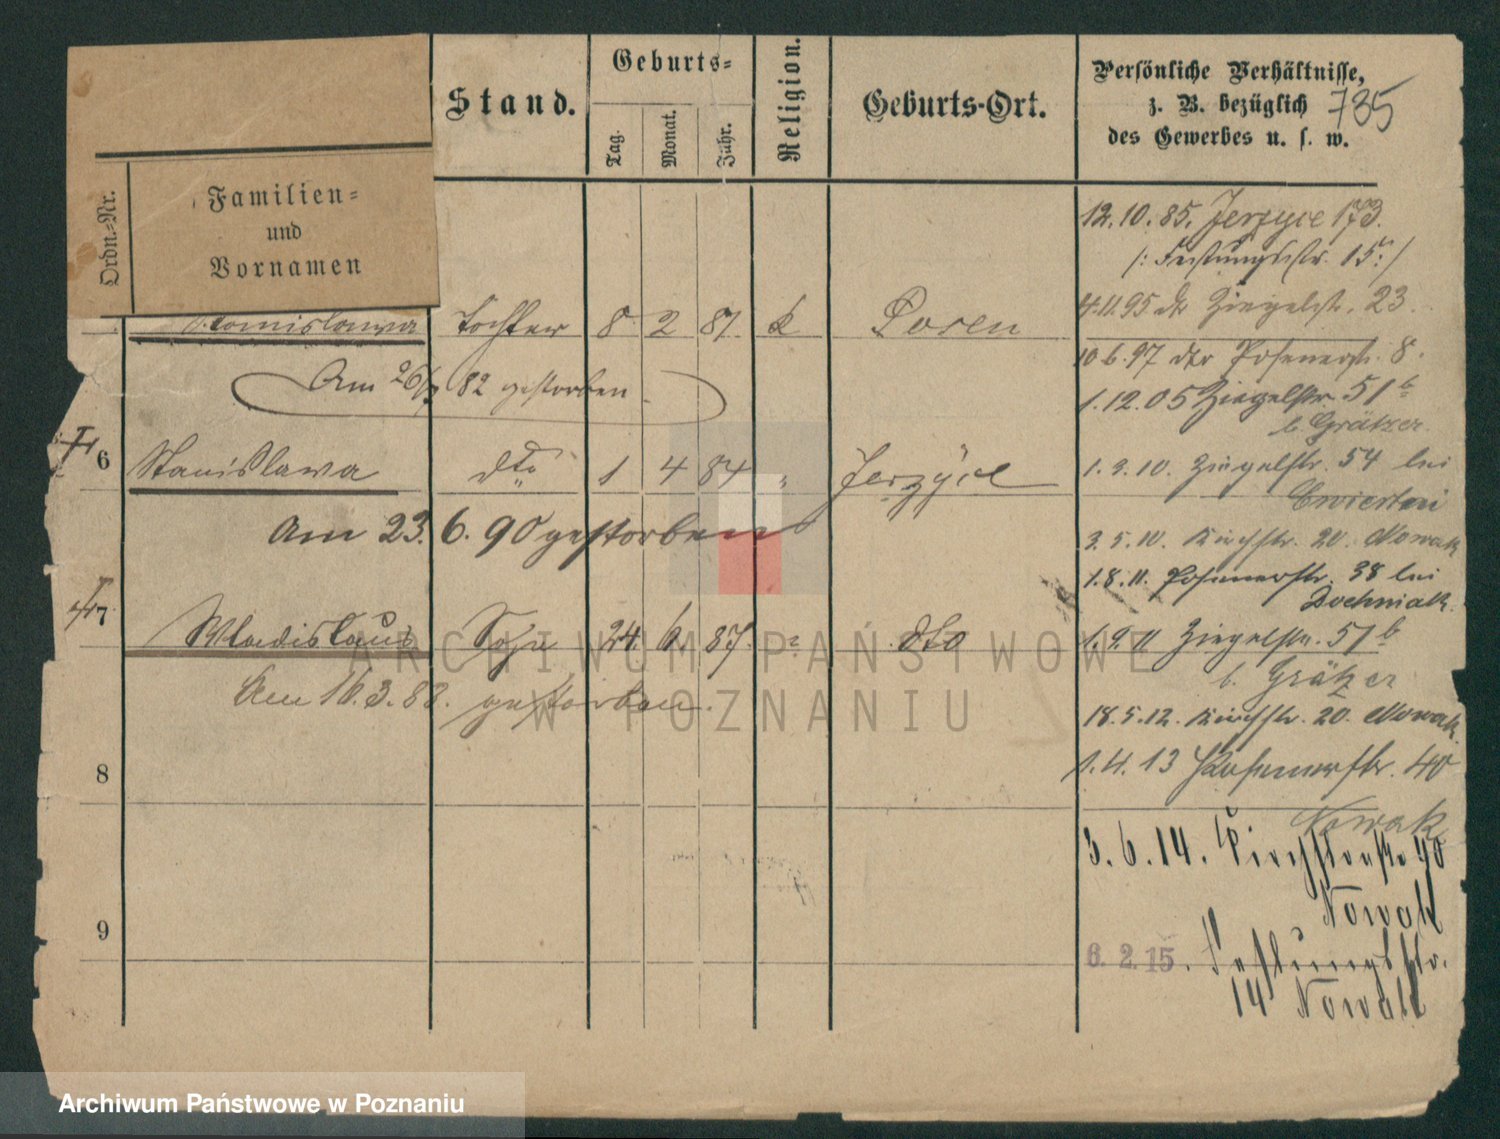 Ordn.-Nr.
Familien-
und
Vornamen
Stand.
Geburts-
Tag.
Monat.
Jahr.
Religion.
Geburts-Ort.
Persönliche Verhältnisse,
z. B. bezüglich
des Gewerbes u. s. w.
735
tochter 8 2 81 k Posen
Am 26/ 82 gestorben
6 Stanislawa dto 1 4 84 " Jerzyce
Am 23. 6. 90 gestorben
7 Wladislaus Sohn 24. 6. 87. " dto
Am 16. 3. 88. gestorben.
8
9
12. 10. 85. Jerzyce 173.
/: Festungsstr. 15 :/
4. 11. 95 dto Ziegelstr. 23
10 6. 97 dto Posenerstr. 8.
1. 12. 05 Ziegelstr. 51 b
b. Grätzer.
1. 3. 10. Ziegelstr. 54 bei
Cwiertni
3. 5. 10. Kirchstr. 20. Nowak
1. 8. 11. Posenerstr. 38 bei
Dochniak.
1. 9. 11 Ziegelstr. 51 b
b. Grätzer
18. 5. 12. Kirchstr. 20. Nowak.
1. 4. 13 Posenerstr. 40
Nowak
3. 6. 14. Kirchstraße 40
Nowak
6. 2. 15. Festungsstr.
14 Nowak
ARCHIWUM PAŃSTWOWE
W POZNANIU
Archiwum Państwowe w Poznaniu